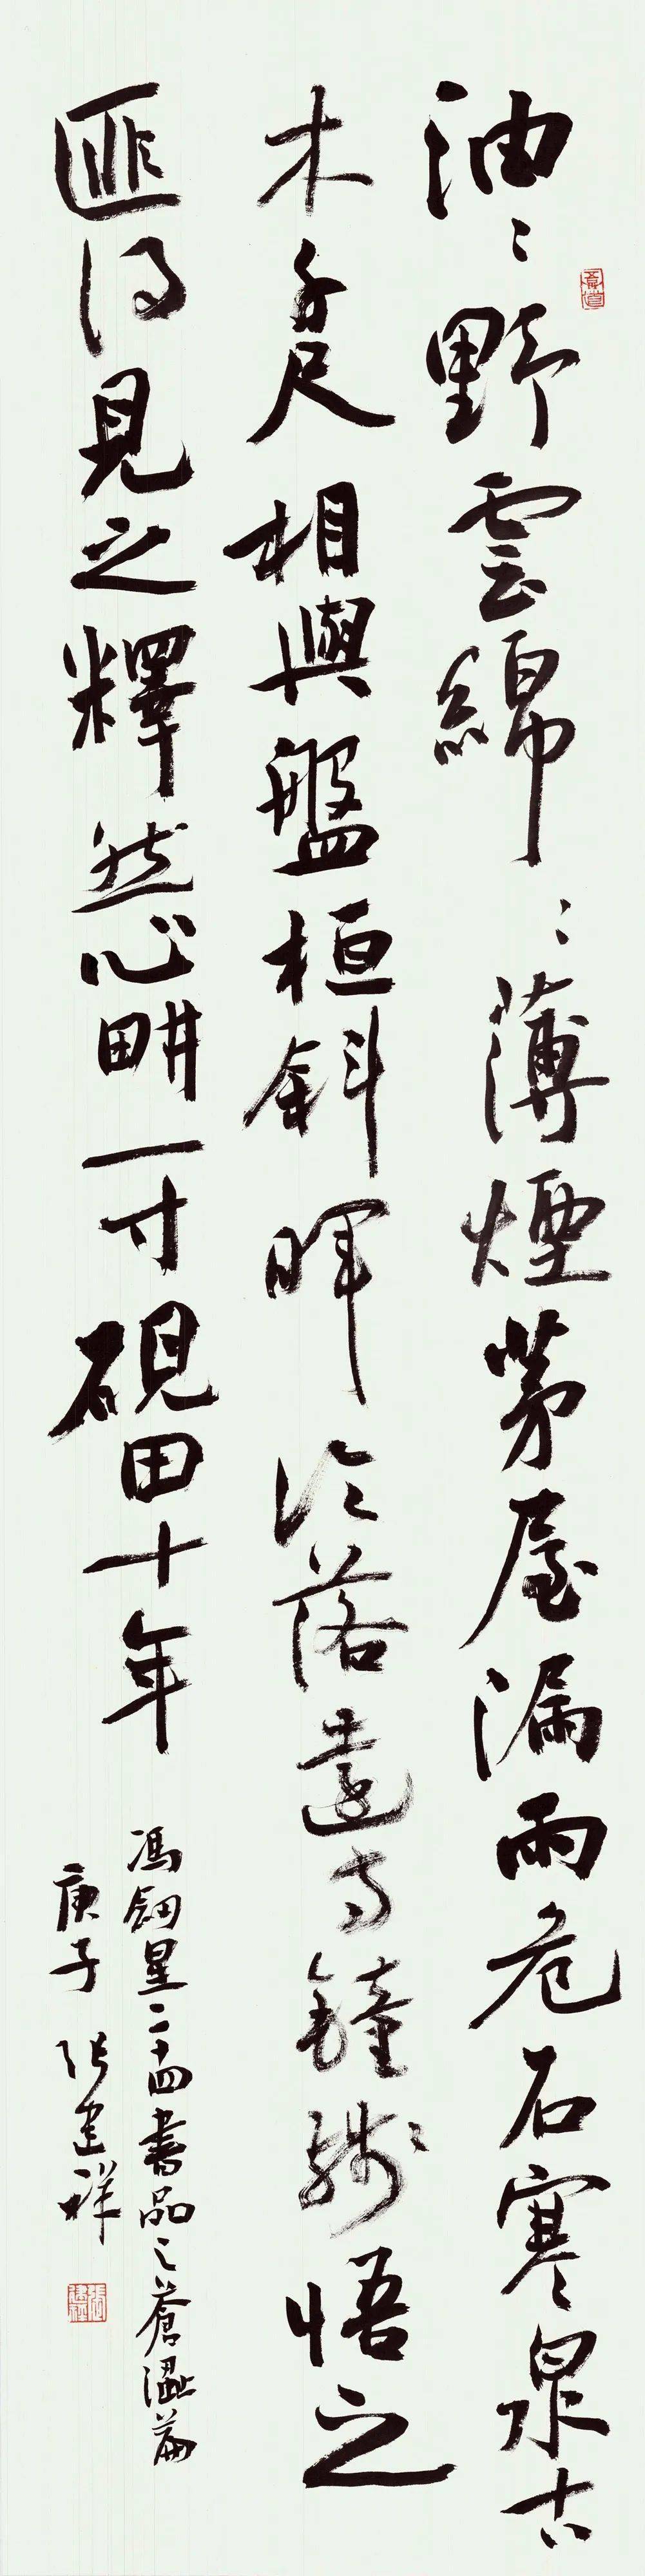 油〻野雲綿〻薄煙茅屋漏雨危石寒泉古
木千尺相與盤桓斜暉冷落遠寺鐘殘〻悟之
匪得見之釋然心畊一寸硯田十年
馮劍星二十四書品之蒼澀篇
庚子 張建祥